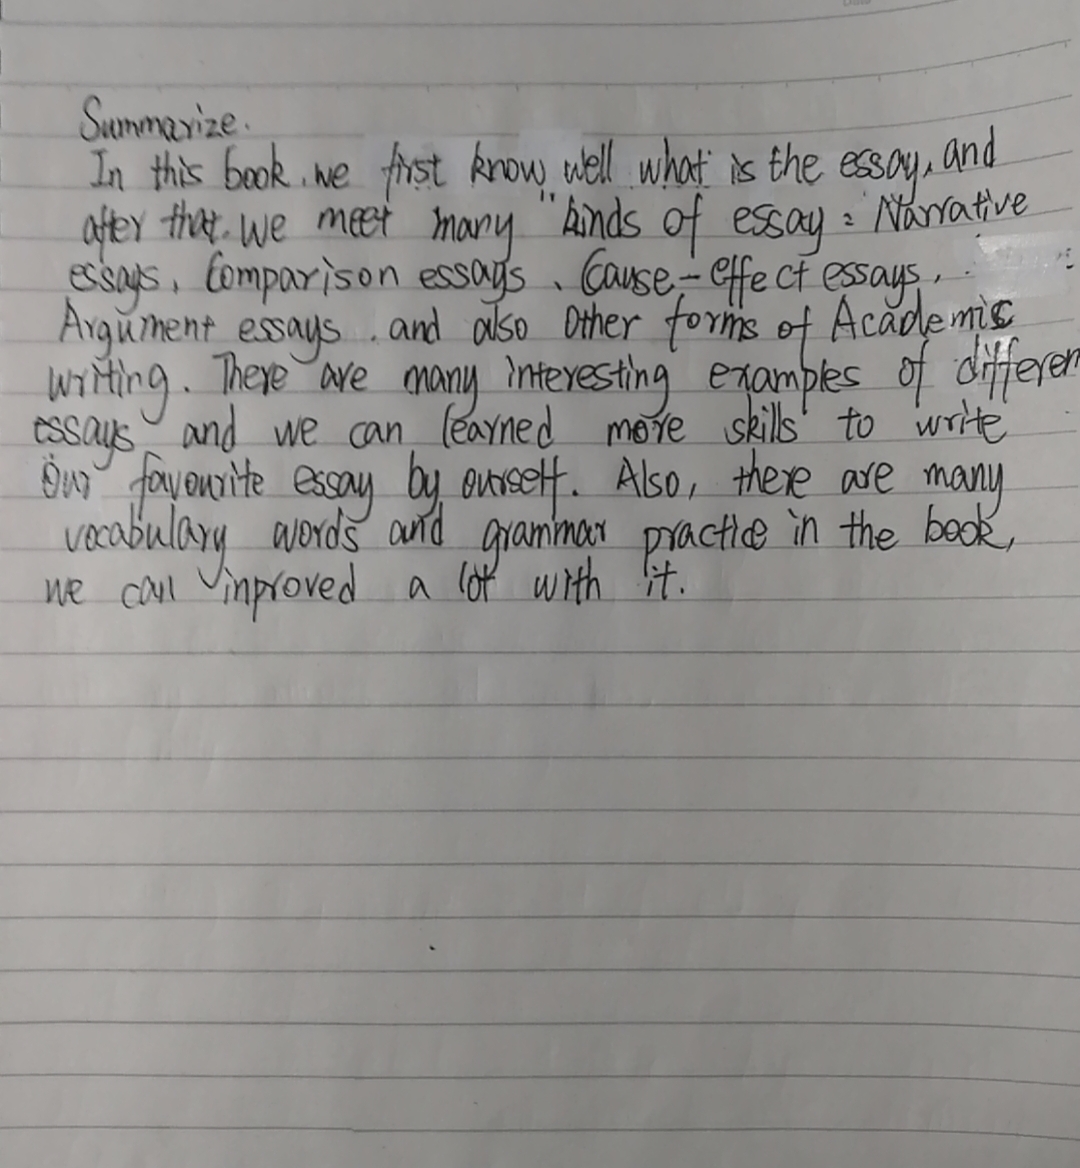 Summarize.
In this book, we first know well what is the essay, and
after that, we meet many kinds of essay: Narrative
essays, Comparison essays, Cause-effect essays,
Argument essays, and also Other forms of Academic
writing. There are many interesting examples of differen
essays and we can learned more skills to write
Our favourite essay by ourself. Also, there are many
vocabulary words and grammar practice in the book,
we can inproved a lot with it.